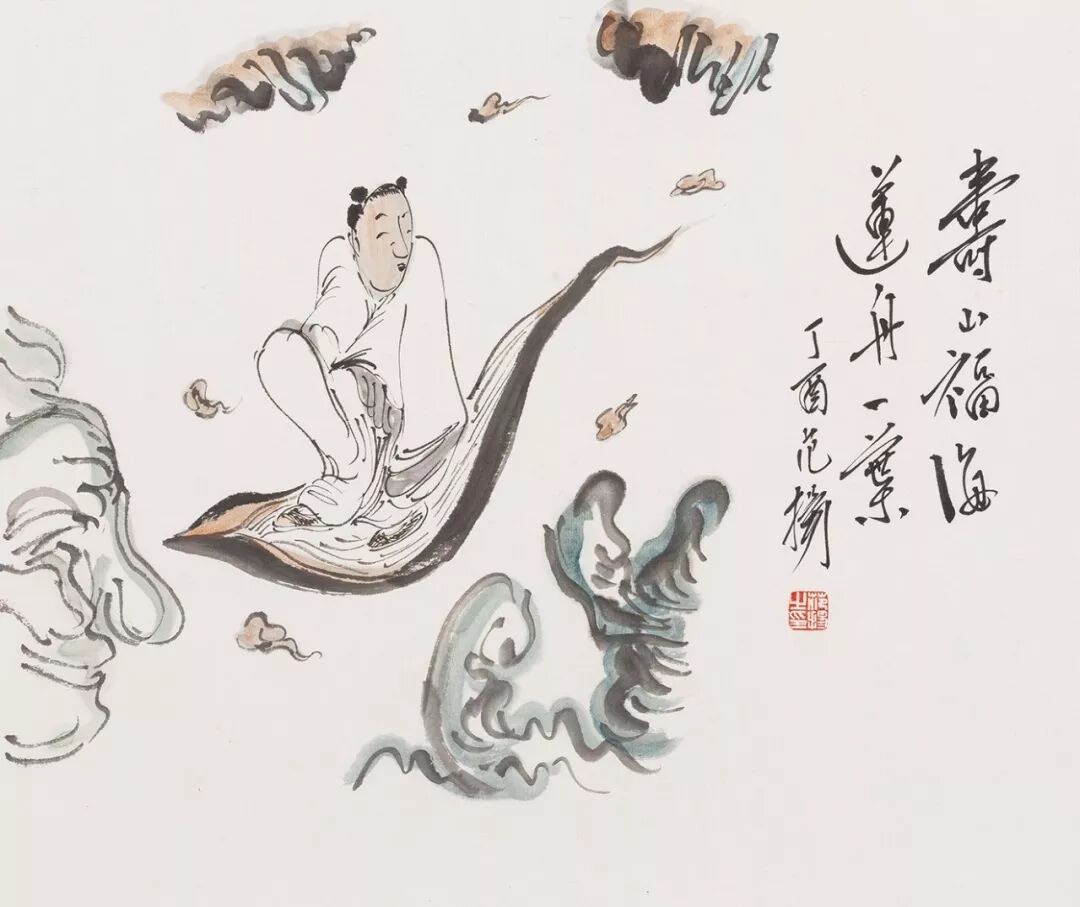 壽山福海
蓮舟一葉
丁酉范揚